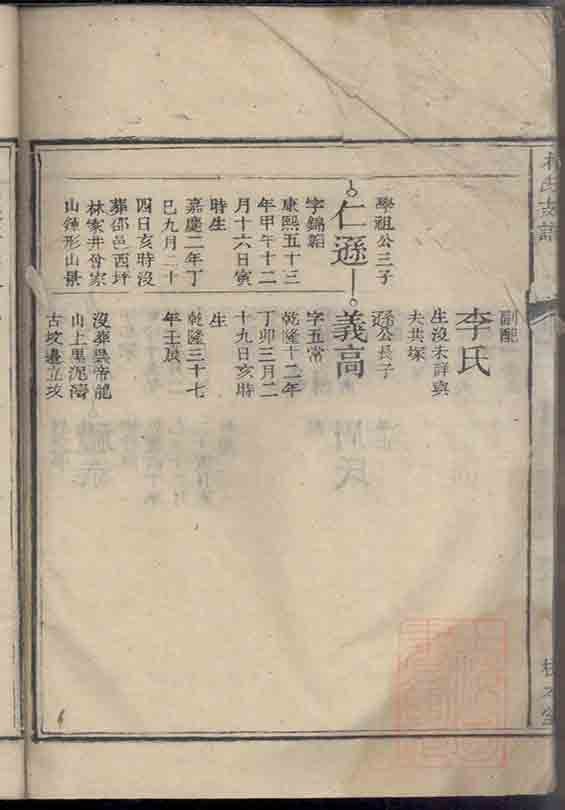 氏支譜
副配
李氏
生沒未詳與
夫共塚
學祖公三子
仁遜
字錦韜
康熙五十三
年甲午十二
月十六日寅
時生
嘉慶二年丁
巳九月二十
四日亥時沒
葬邵邑西坪
林家井曾家
山鍾形山景
遜公長子
義高
字五常
乾隆十二年
丁卯三月二
十九日亥時
生
乾隆三十七
年壬辰
沒葬吳帝龍
山上里泥灣
古坟邊立坟